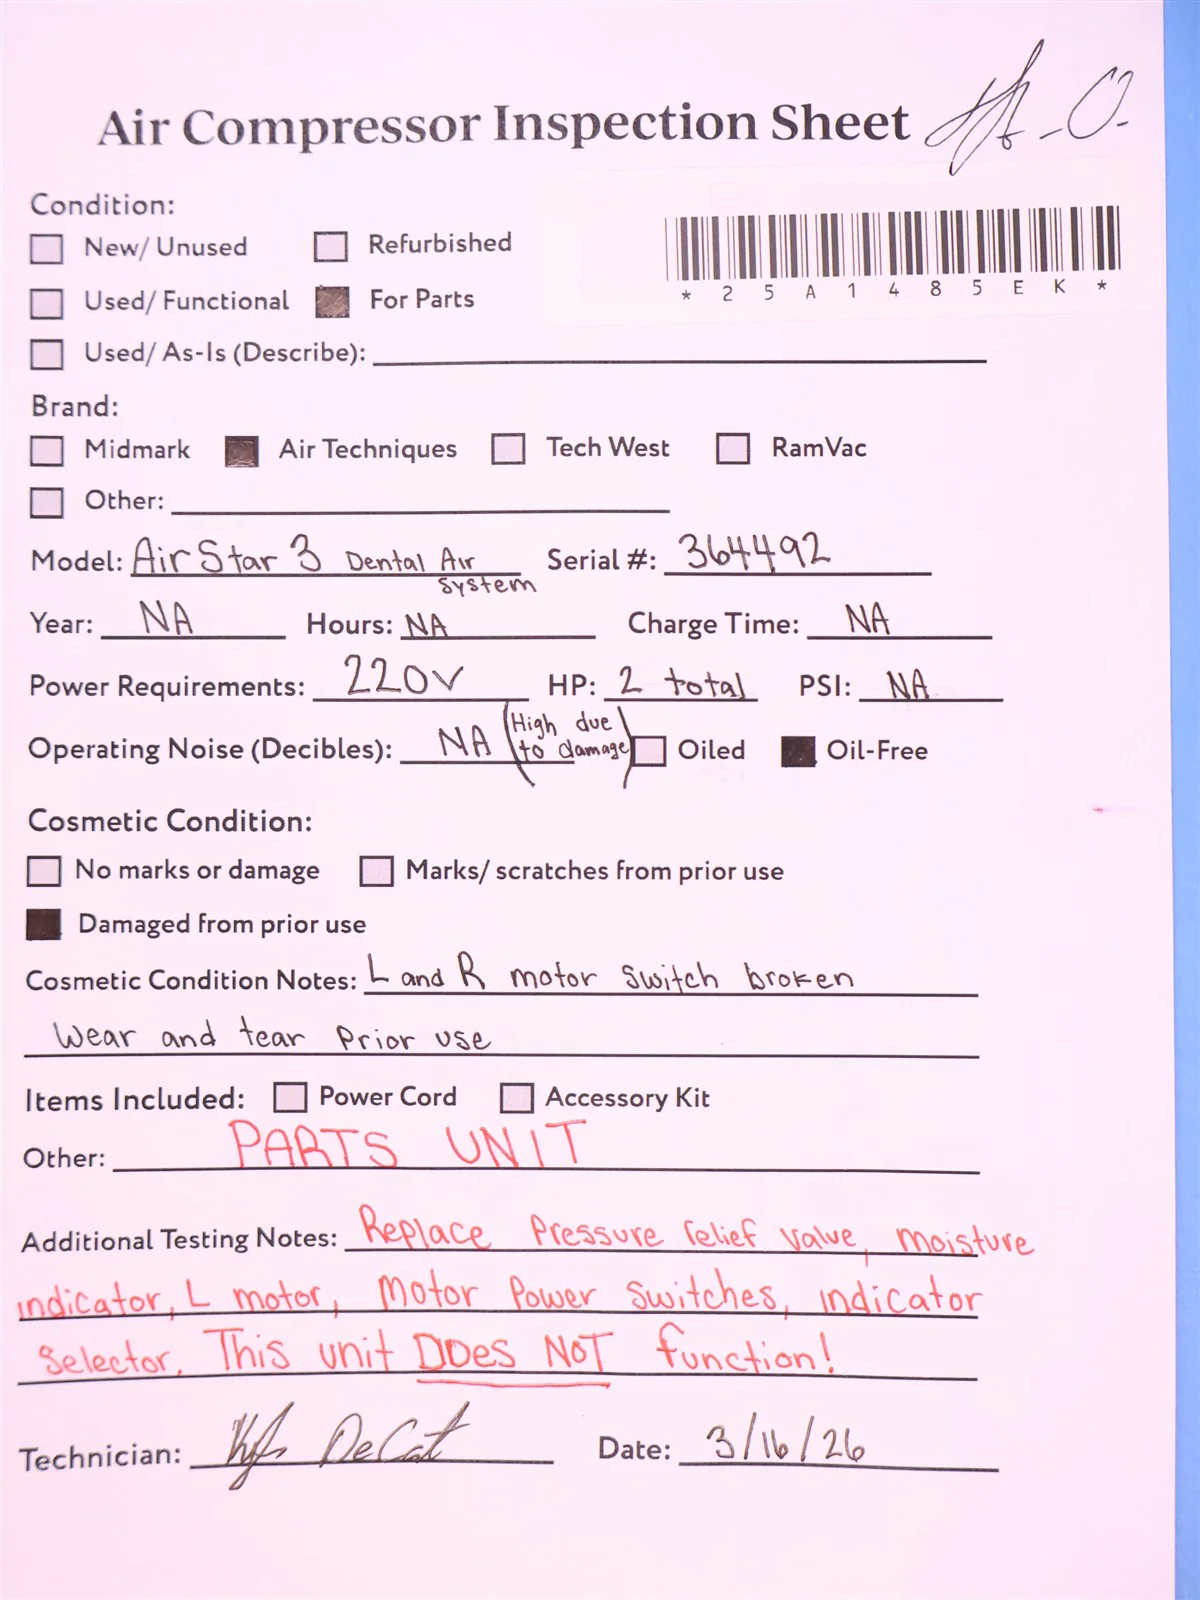 Air Compressor Inspection Sheet
Condition:
New/ Unused Refurbished
Used/ Functional For Parts
*25A1485EK*
Used/ As-Is (Describe):
Brand:
Midmark Air Techniques Tech West RamVac
Other:
Model: Air Star 3 Dental Air System Serial #: 364492
Year: NA Hours: NA Charge Time: NA
Power Requirements: 220V HP: 2 total PSI: NA
Operating Noise (Decibles): NA (High due to damage) Oiled Oil-Free
Cosmetic Condition:
No marks or damage Marks/ scratches from prior use
Damaged from prior use
Cosmetic Condition Notes: L and R motor switch broken
Wear and tear prior use
Items Included: Power Cord Accessory Kit
Other: PARTS UNIT
Additional Testing Notes: Replace Pressure relief valve, moisture
indicator, L motor, Motor Power Switches, indicator
Selector. This unit DOes NOT function!
Technician: DeCat Date: 3/16/26